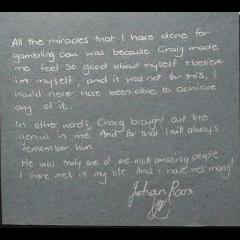 All the miracles that I have done for
gambling can was because Craig made
me feel so good about myself + believe
in myself, and it was not for this, I
would never have been able to achieve
any of it.
In other words, Craig brought out the
genius in me. And for that I will always
remember him.
He was truly one of the most amazing people
I have met in my life. And I have met many!
Johan